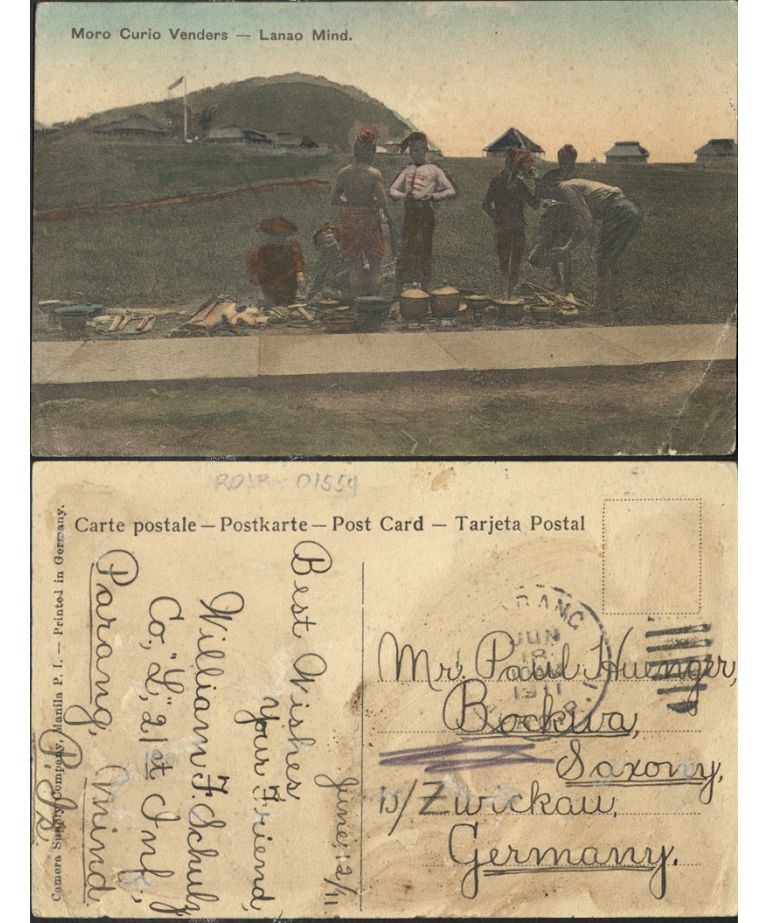 Moro Curio Venders — Lanao Mind.
RDSP - 01554
Carte postale — Postkarte — Post Card — Tarjeta Postal
Camera Supply Company, Manila P. I. — Printed in Germany.
Best Wishes
Your Friend,
William F. Schulz
Co, "L," 21st Inf,
Parang, Mind.
P. Is.
June, 12/11.
PARANG
JUN
1911
Mr. Paul Huenger,
Bockwa,
Saxony,
b/ Zwickau,
Germany.